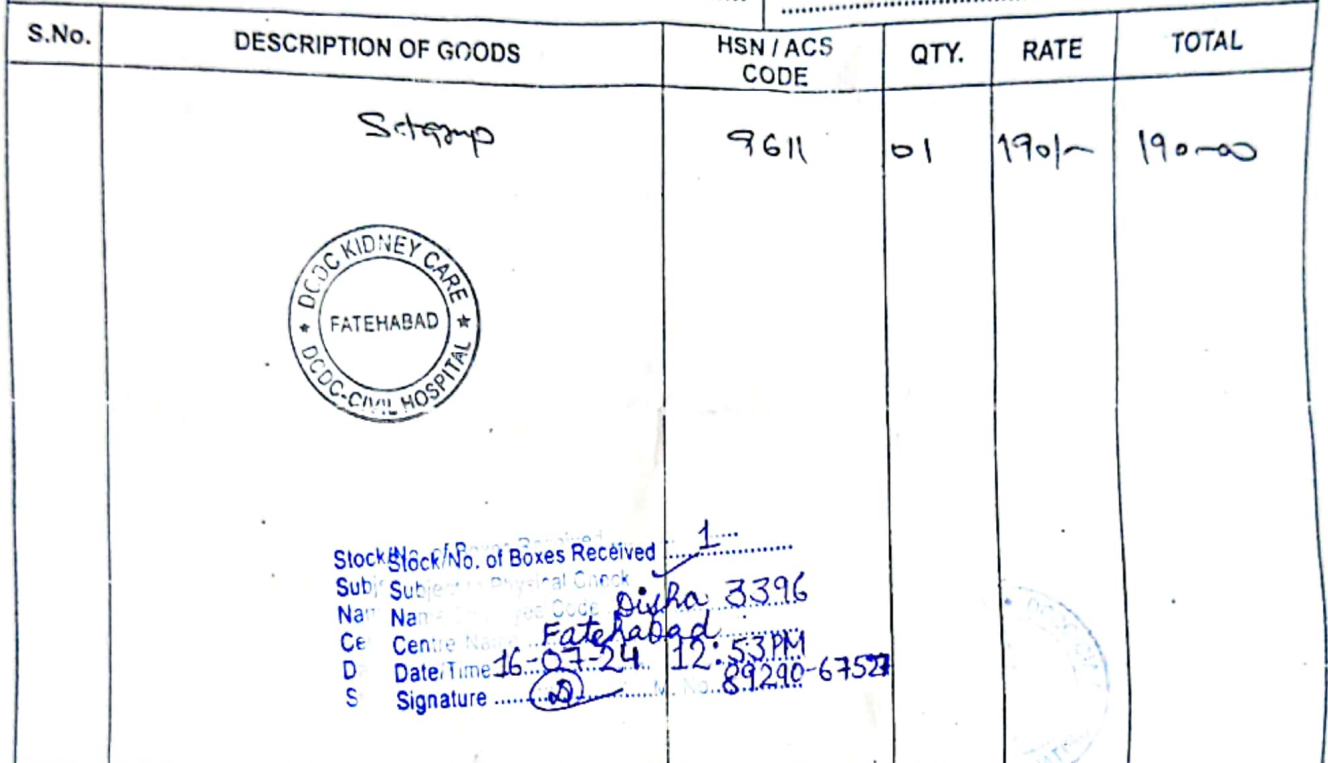 S.No. DESCRIPTION OF GOODS HSN / ACS CODE QTY. RATE TOTAL
9611 01 190/- 190-00
DCDC KIDNEY CARE
FATEHABAD
DCDC-CIVIL HOSPITAL
Stock/No. of Boxes Received 1
Subject to Physical Check
Name Code Disha 3396
Centre Name Fatehabad
Date/Time 16-07-24 12:53PM
Signature D M. No. 89290-67527